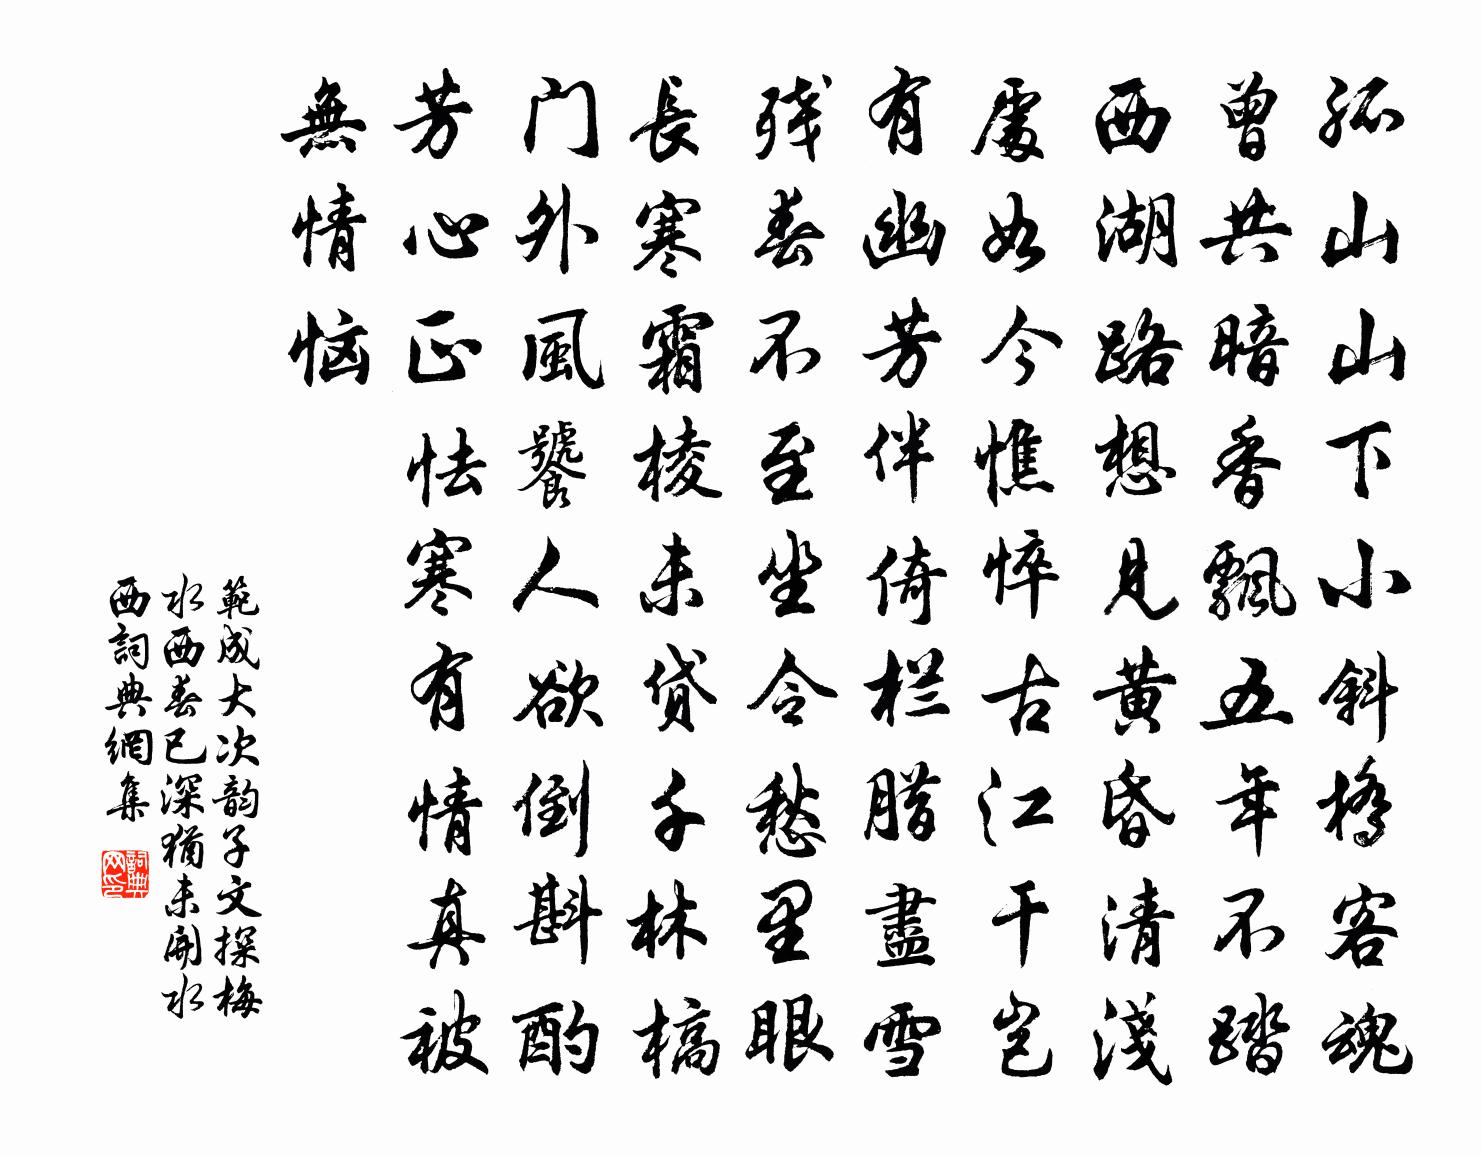 孤山山下小斜橋客魂
曾共暗香飄五年不踏
西湖路想見黄昏清淺
處如今憔悴古江干豈
有幽芳伴倚栏腊盡雪
残春不至坐令愁里眼
長寒霜棱未贷千林槁
门外風饕人欲倒斟酌
芳心正怯寒有情真被
無情恼
範成大次韵子文探梅
水西春已深猶未開水
西詞典網集
詞典网印